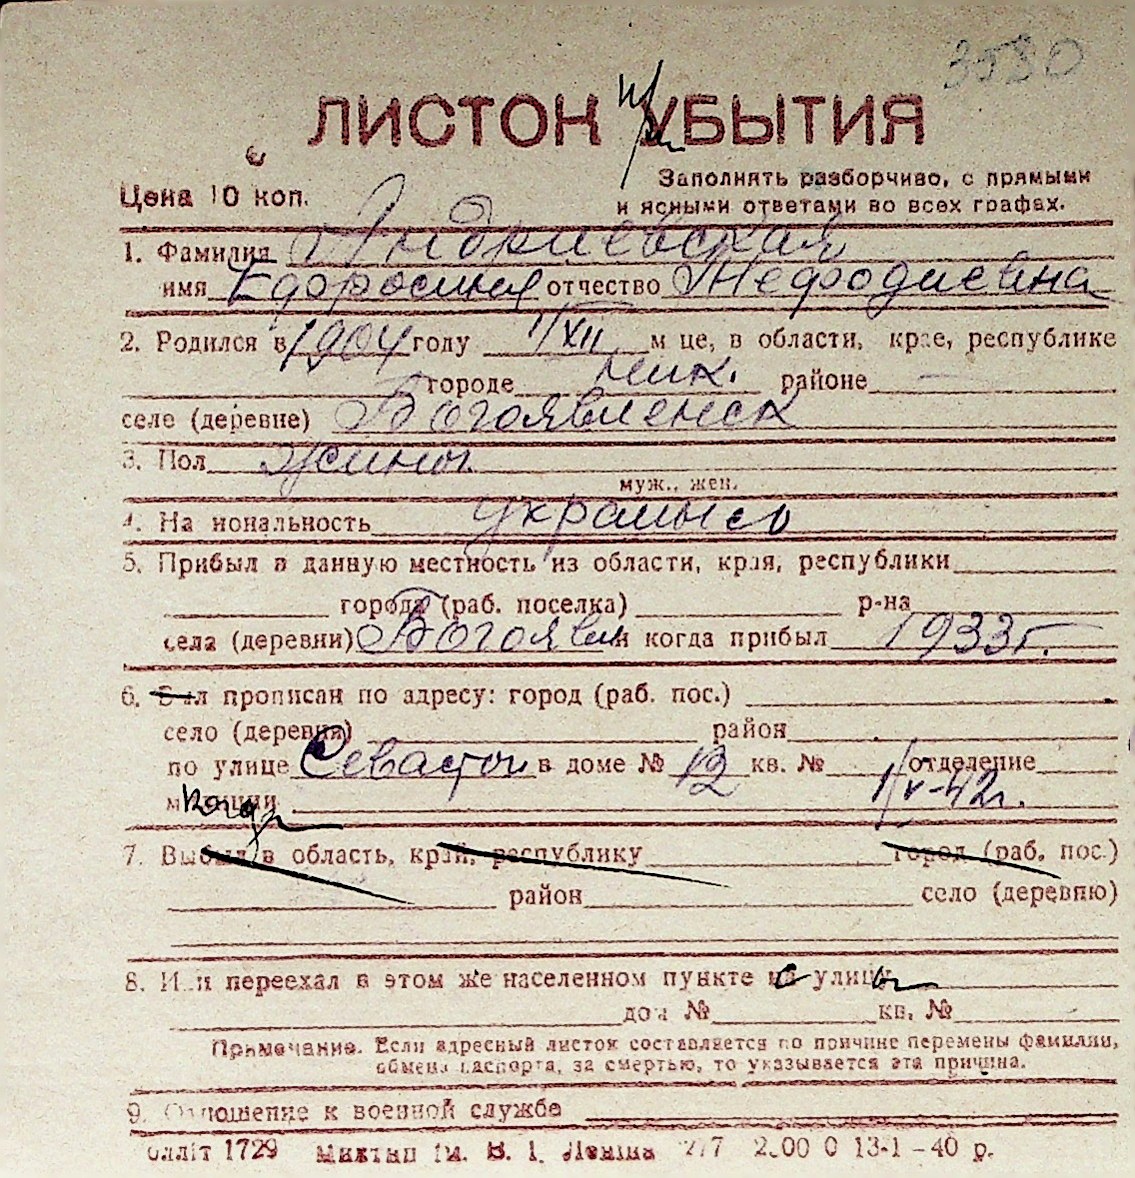 3580
ЛИСТОК УБЫТИЯ
при
Цена 10 коп.
Заполнять разборчиво, с прямыми
и ясными ответами во всех графах.
1. Фамилия Андриевская
имя отчество Мефодиевна
2. Родился в 1904 году 1/XII м це, в области, крае, республике
городе Ник. районе —
селе (деревне) Богоявленск
3. Пол
муж., жен.
4. На иональность
5. Прибыл в данную местность из области, края, республики
города (раб. поселка) р-на
села (деревни) Богоявлен и когда прибыл 1933 г.
6. Был прописан по адресу: город (раб. пос.)
село (деревня) район
по улице Севастоп в доме № 12 кв. № отделение
милиции 1/V-42г.
7. Выбыл в область, край, республику город (раб. пос.)
район село (деревню)
8. Или переехал в этом же населенном пункте на с улицы
дом № кв. №
Примечание. Если адресный листок составляется по причине перемены фамилии,
обмена паспорта, за смертью, то указывается эта причина.
9. Отношение к военной службе
оlліт 1729 Миктип ім. В. І. Леніна 277 2.00 0 13-1-40 р.